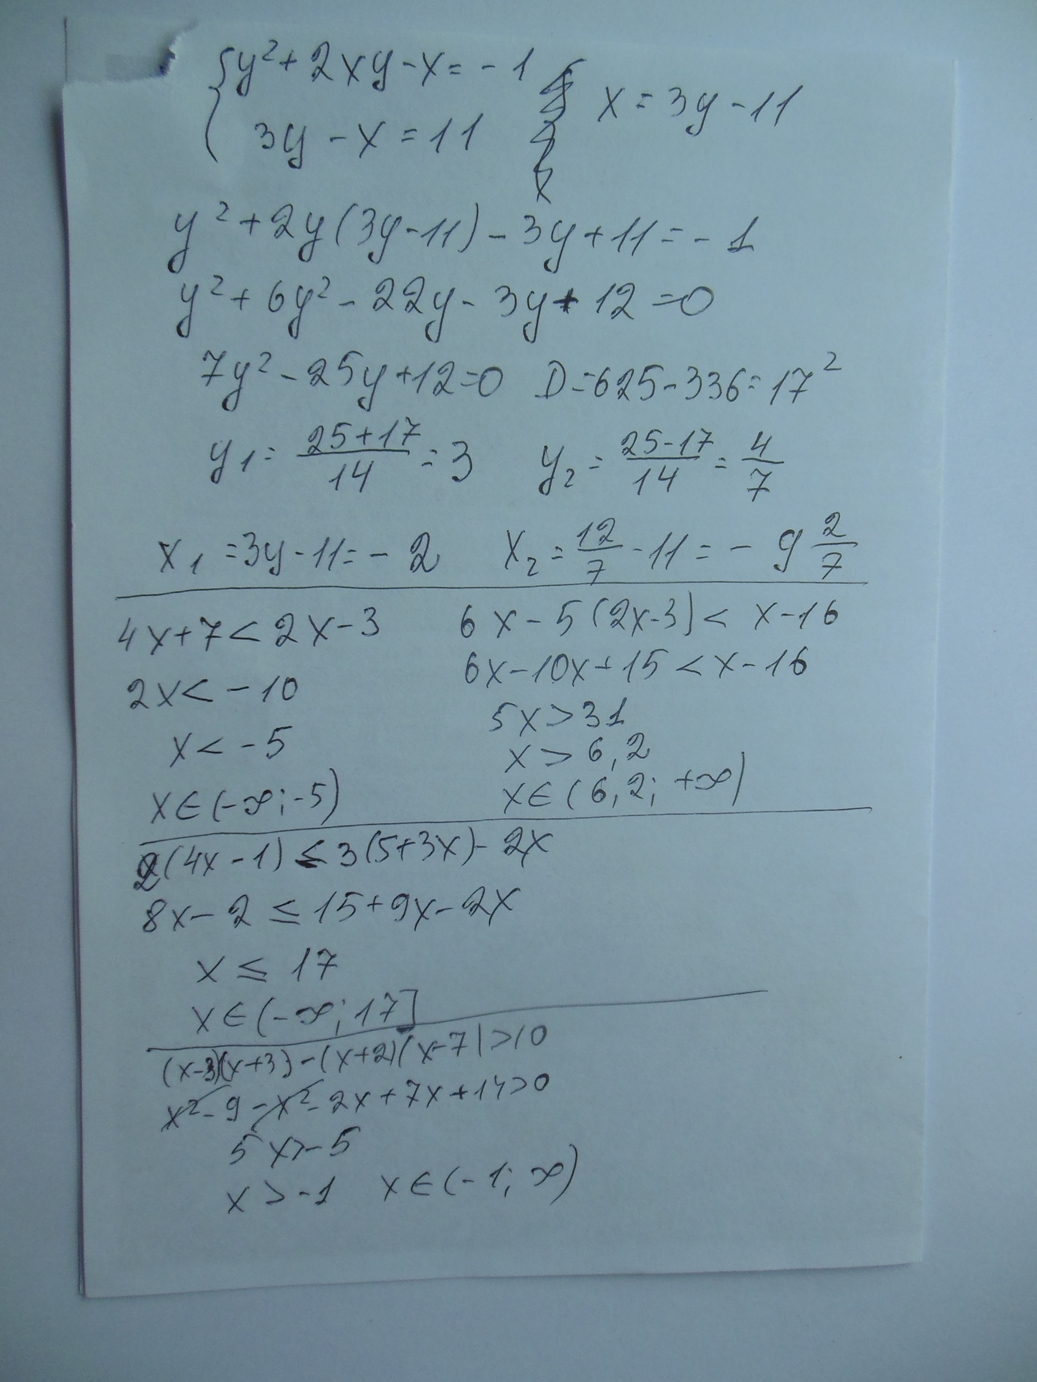 { y² + 2xy - x = -1
3y - x = 11 x = 3y - 11
y² + 2y(3y - 11) - 3y + 11 = -1
y² + 6y² - 22y - 3y + 12 = 0
7y² - 25y + 12 = 0 D = 625 - 336 = 17²
y₁ = (25+17)/14 = 3 y₂ = (25-17)/14 = 4/7
x₁ = 3y - 11 = -2 x₂ = 12/7 - 11 = -9 2/7
4x + 7 < 2x - 3
2x < -10
x < -5
x ∈ (-∞; -5)
6x - 5(2x-3) < x - 16
6x - 10x + 15 < x - 16
5x > 31
x > 6,2
x ∈ (6,2; +∞)
2(4x - 1) ≤ 3(5 + 3x) - 2x
8x - 2 ≤ 15 + 9x - 2x
x ≤ 17
x ∈ (-∞; 17]
(x-3)(x+3) - (x+2)(x-7) > 10
x² - 9 - x² - 2x + 7x + 14 > 0
5x > -5
x > -1 x ∈ (-1; ∞)